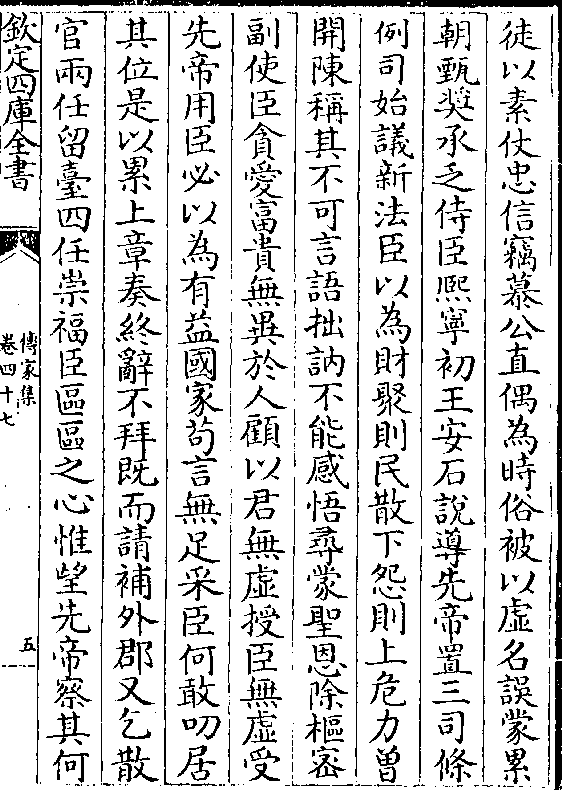 徒以素仗忠信竊慕公直偶為時俗被以虛名誤蒙累
朝甄奬承乏侍臣熙寧初王安石說導先帝置三司條
例司始議新法臣以為財聚則民散下怨則上危力曾
開陳稱其不可言語拙訥不能感悟尋蒙聖恩除樞宻
副使臣貪愛富貴無異於人顧以君無虛授臣無虛受
先帝用臣必以為有益國家茍言無足采臣何敢叨居
其位是以累上章奏終辭不拜既而請補外郡又乞散
官兩任留臺四任崇福臣區區之心惟望先帝察其何
欽定四庫全書
傳家集
卷四十七
五